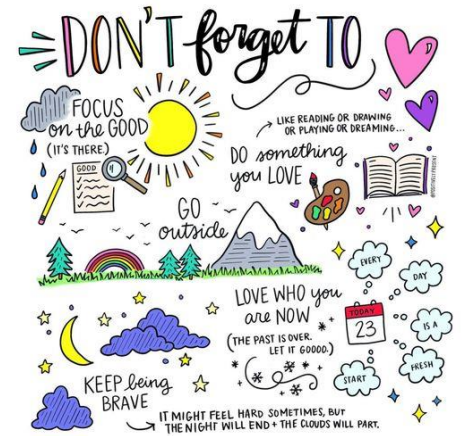 DON'T forget TO
FOCUS
on the GOOD
(IT'S THERE.)
GOOD
LIKE READING OR DRAWING
OR PLAYING OR DREAMING...
DO something
you LOVE
GO
outside
LOVE WHO you
are NOW
(THE PAST IS OVER.
LET IT GOOOO.)
EVERY
DAY
IS A
FRESH
START
TODAY
23
KEEP being
BRAVE
IT MIGHT FEEL HARD SOMETIMES, BUT
THE NIGHT WILL END + THE CLOUDS WILL PART.